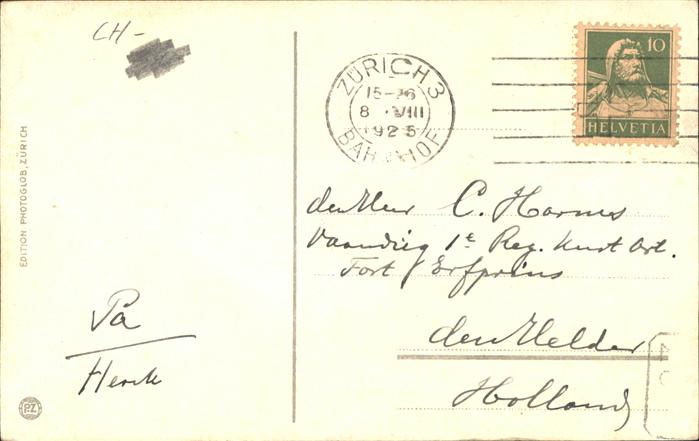 CH-
ZÜRICH 3
15-16
8 · VIII
1925
BAHNHOF
10
HELVETIA
EDITION PHOTOGLOB, ZÜRICH
den Heer C. Harms
Vaandrig 1e Reg. Kust Art.
Fort Erfprins
den Helder
Holland
Pa
Henk
P.Z